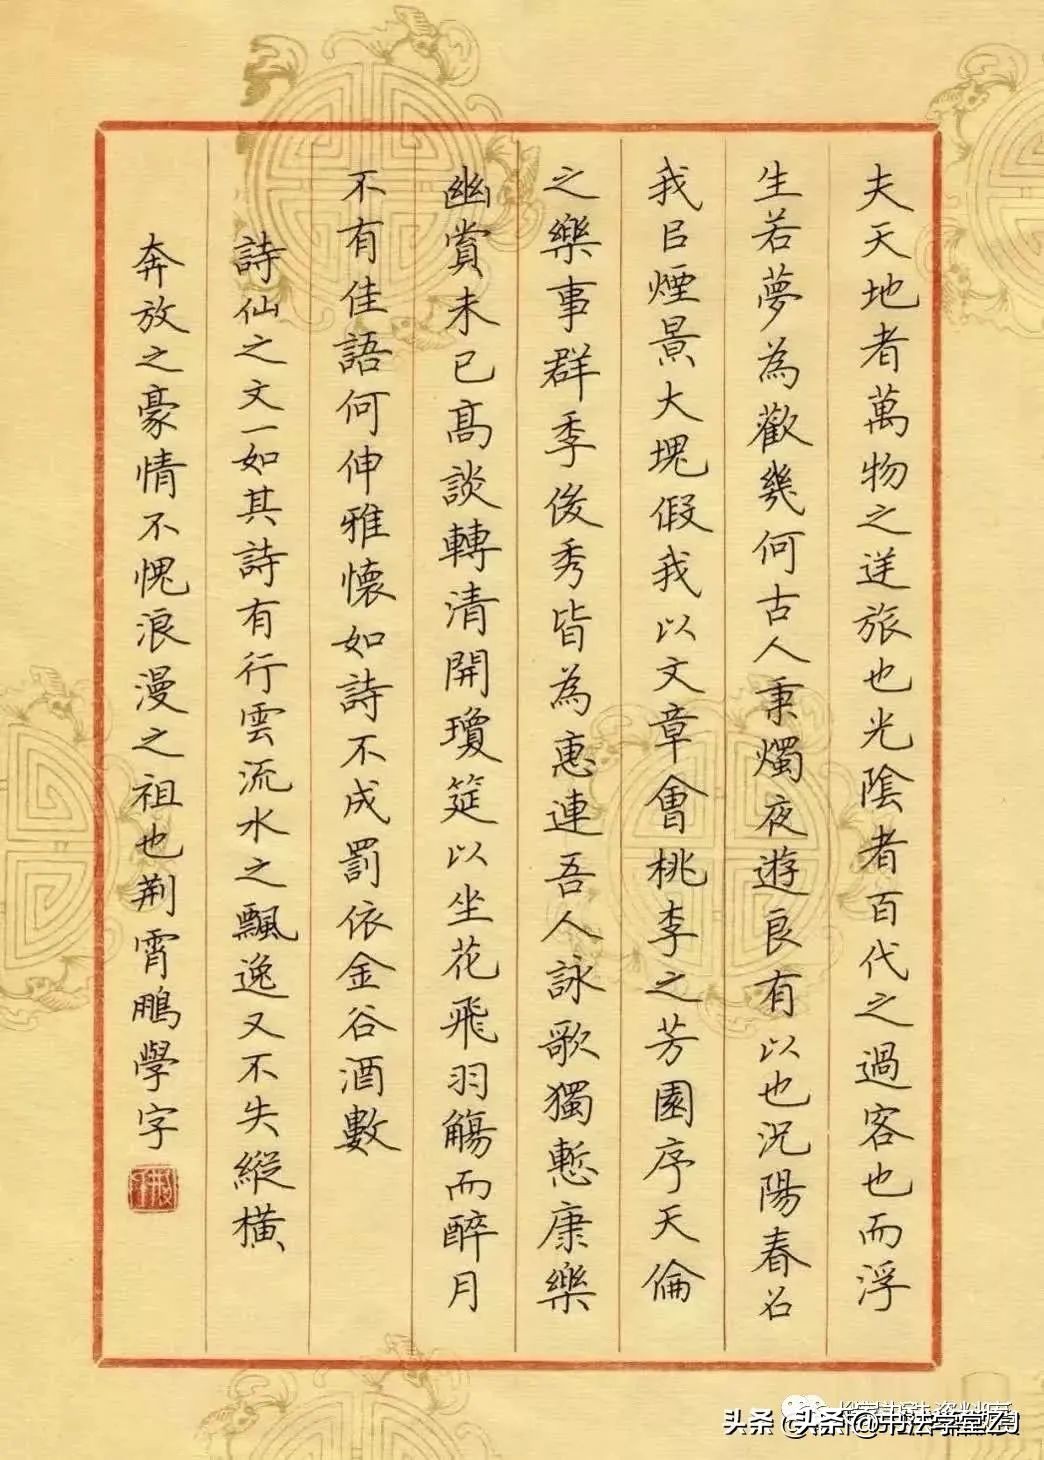 夫天地者萬物之逆旅也光陰者百代之過客也而浮
生若夢為歡幾何古人秉燭夜遊良有以也況陽春召
我㠯煙景大塊假我以文章會桃李之芳園序天倫
之樂事群季俊秀皆為惠連吾人詠歌獨慙康樂
幽賞未已高談轉清開瓊筵以坐花飛羽觴而醉月
不有佳語何伸雅懷如詩不成罰依金谷酒數
詩仙之文一如其詩有行雲流水之飄逸又不失縱橫
奔放之豪情不愧浪漫之祖也荆霄鵬學字
头条 头条@书法学堂